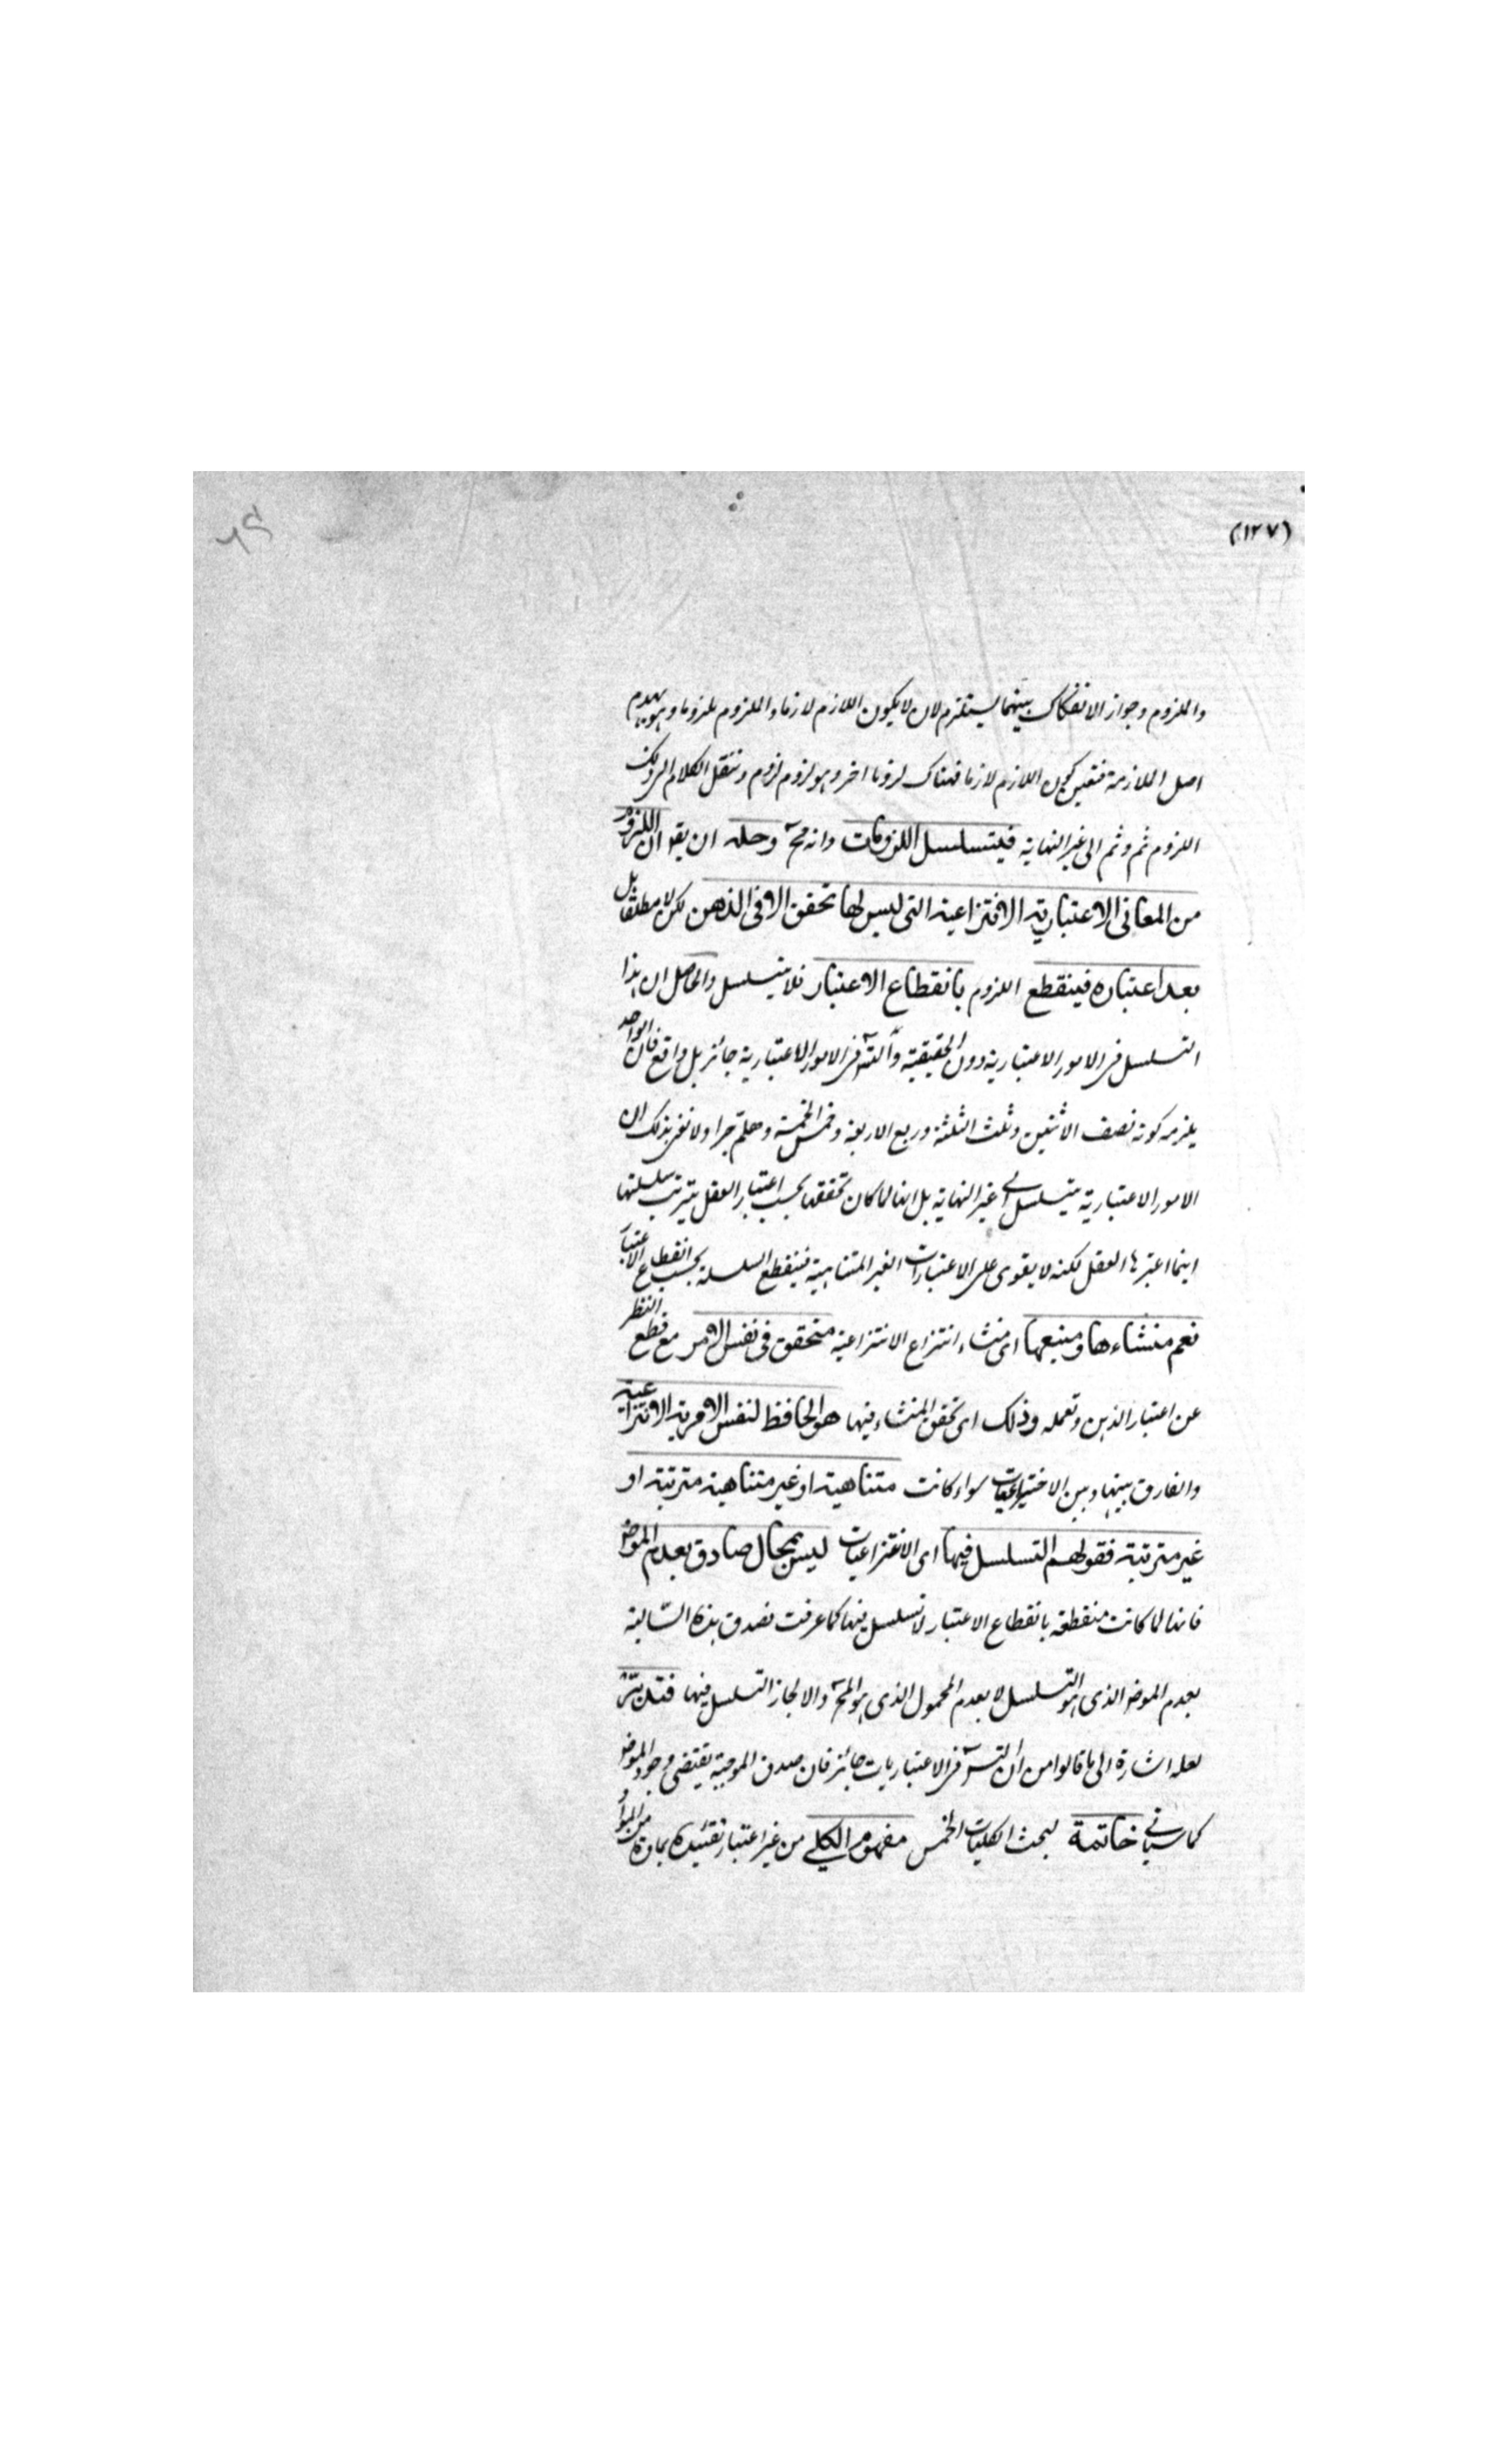 (١٢٧)
٦٩
والملزوم وجواز الانفكاك بينهما يستلزم لان لا يكون اللازم لازما والملزوم ملزوما وهو يهدم
اصل الملازمة فتعين كون اللازم لازما فهناك لزوما اخر وهو لزوم لزوم وننقل الكلام الى ذلك
اللزوم ثم وثم الى غير النهاية فيتسلسل اللزومات وانه مح وحله ان يقو ان اللزوم
من المعانى الاعتبارية الانتزاعية التى ليس لها تحقق الا فى الذهن لكن لا مطلقا بل
بعد اعتباره فينقطع اللزوم بانقطاع الاعتبار فلا يتسلسل والحاصل ان هذا
التسلسل فى الامور الاعتبارية دون الحقيقية والتسـ فى الامور الاعتبارية جائز بل واقع فان الواحد
يلزمه كونه نصف الاثنين وثلث الثلثة وربع الاربعة وخمس الخمسة وهلم جرا ولا نعنى بذلك ان
الامور الاعتبارية يتسلسل الى غير النهاية بل انها لما كان تحققها بحسب اعتبار العقل يترتب سلسلتها
اينما اعتبرها العقل لكنه لا يقوى على الاعتبارات الغير المتناهية فينقطع السلسلة بحسب انقطاع الاعتبار
نعم منشاءها ومنبعها اى منشاء انتزاع الانتزاعية متحقق فى نفس الامر مع قطع النظر
عن اعتبار الذهن وتعمله وذلك اى تحقق المنشاء فيها هو الحافظ لنفس الامرية الانتزاعية
والفارق بينها وبين الاختراعيات سواء كانت متناهية او غير متناهية مترتبة او
غير مترتبة فقولهم التسلسل فيها اى الانتزاعيات ليس بمحال صادق بعدم الموضو
فانها لما كانت منقطعة بانقطاع الاعتبار لا تسلسل فيها كما عرفت فصدق هذه السّالبة
بعدم الموضو الذى هو التسلسل لا بعدم المحمول الذى هو المح والا لجاز التسلسل فيها فتدبّر
لعله اشارة الى ما قالوا من ان التسـ فى الاعتباريات جائز فان صدق الموجبة يقتضى وجود الموضو
كما سياتى خاتمة لبحث الكليات الخمس مفهوم الكلى من غير اعتبار تقييده بمادة من المواد